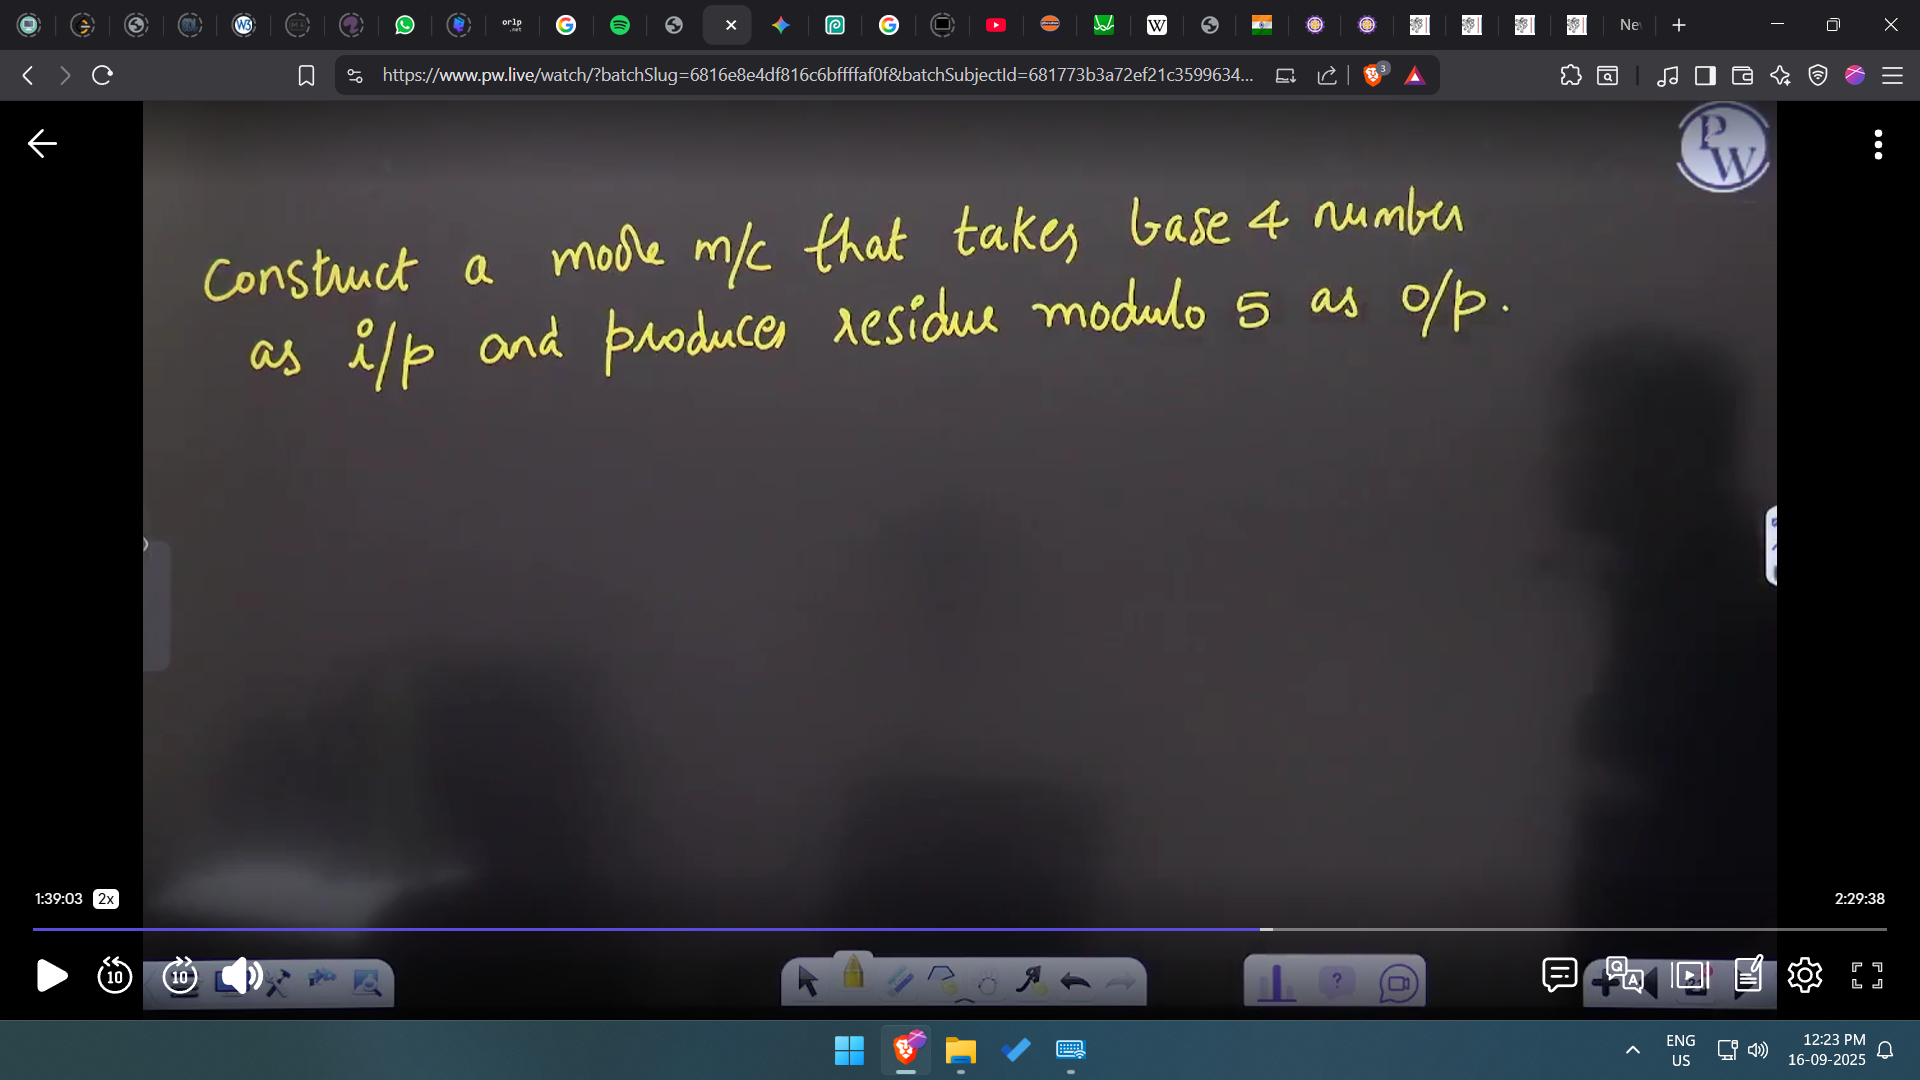 orlp
.net
Ne
https://www.pw.live/watch/?batchSlug=6816e8e4df816c6bffffaf0f&batchSubjectId=681773b3a72ef21c3599634...
3
PW
Construct a moore m/c that takes base 4 number
as i/p and produces residue modulo 5 as o/p.
1:39:03 2x
2:29:38
10 10
ENG
US
12:23 PM
16-09-2025